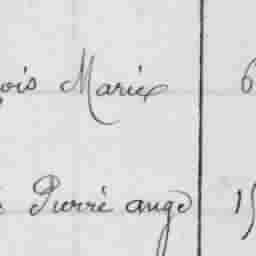 ois Marie 6
Pierre ange 15